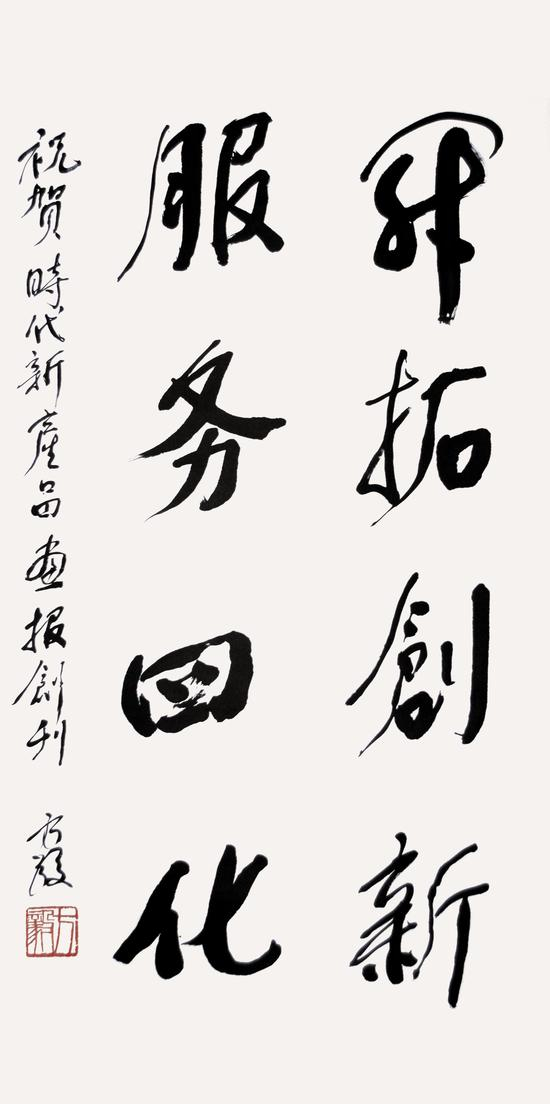 開拓創新
服务四化
祝賀時代新產品画报創刊
方毅
方毅